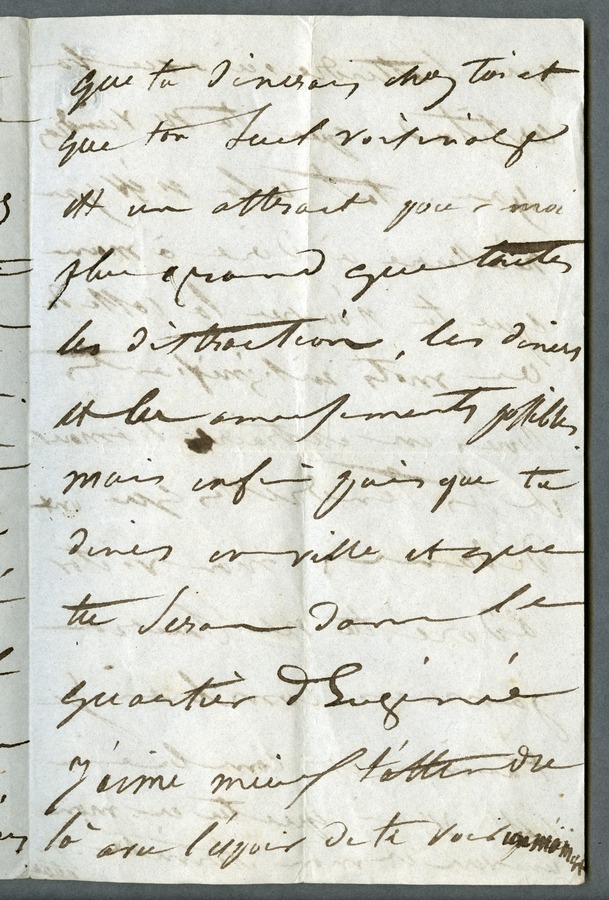 que tu dinerais chez toi et
que ton seul voisinage
est un attrait pour moi
plus grand que toutes
les distraction, les diners
et les amusements possibles
mais enfin puisque tu
dines en ville et que
tu seras dans le
quartier d'Eugénie
j'aime mieux t'attendre
là avec l'espoir de te voir un moment